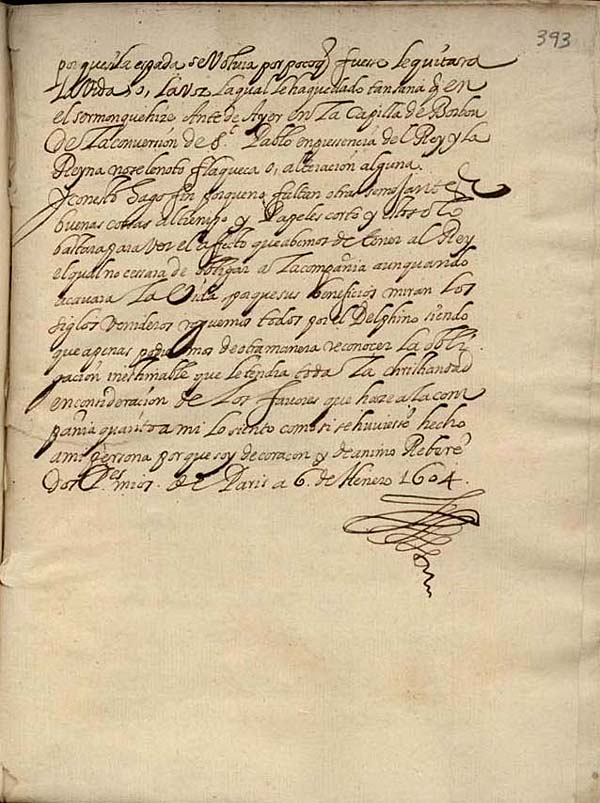 393
porque si la espada se Voluia por poco q̃ fuese le quitara
La vida, o, La voz La qual le ha quedado tan sana q̃ en
el sermon que hizo Ante de Ayer en La Capilla de Borbon
de La conuersion de S.t Pablo en presencia del Rey y la
Reyna no se le noto flaqueca o, alteracion alguna.
Y con esto hago fin porque no faltan otras semejantes
buenas cossas al tiempo y Papeles corto y esto solo
bastara para ver el affecto que abemos de tener al Rey
el qual no cessara de obligar a La compañia aun quando
acauara La Vida porque sus beneficios miran Los
siglos venideros roguemos todos por el Delphino siendo
que apenas podriamos de otra manera reconocer La obli
gacion inestimable que le tendra toda La christiandad
en consideracion de Los fauores que haze a La com
pañia quanto a mi Lo siento como si se huuiesse hecho
a mi persona porque soy de coracon y de animo Reberẽ
dos P.es mios. de Paris a 6. de Henero 1604.